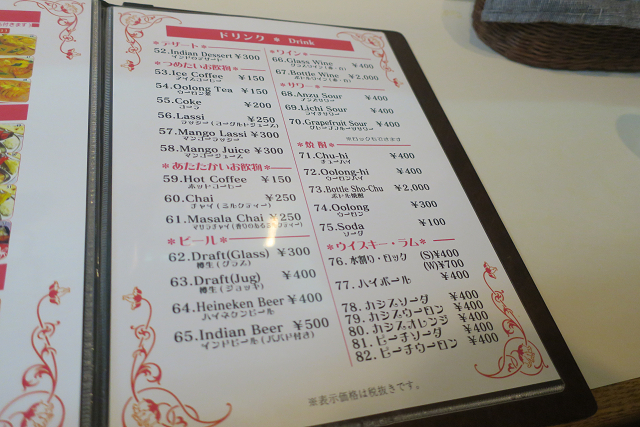 ドリンク * Drink
*デザート*
52.Indian Dessert ¥300
インドのデザート
*つめたいお飲物*
53.Ice Coffee ¥150
アイスコーヒー
54.Oolong Tea ¥150
ウーロン茶
55.Coke ¥200
コーラ
56.Lassi ¥250
ラッシー(ヨーグルトジュース)
57.Mango Lassi ¥300
マンゴーラッシー
58.Mango Juice ¥300
マンゴージュース
*あたたかいお飲物*
59.Hot Coffee ¥150
ホットコーヒー
60.Chai ¥250
チャイ(ミルクティー)
61.Masala Chai ¥250
マサラチャイ(香りのあるミルクティー)
*ビール*
62.Draft(Glass) ¥300
樽生(グラス)
63.Draft(Jug) ¥400
樽生(ジョッキ)
64.Heineken Beer ¥400
ハイネケンビール
65.Indian Beer ¥500
インドビール(パパド付き)
*ワイン*
66.Glass Wine ¥400
グラスワイン(赤・白)
67.Bottle Wine ¥2,000
ボトルワイン(赤・白)
*サワー*
68.Anzu Sour ¥400
アンズサワー
69.Lichi Sour ¥400
ライチサワー
70.Grapefruit Sour ¥400
グレープフルーツサワー
*焼酎*
※ロックもできます
71.Chu-hi ¥400
チューハイ
72.Oolong-hi ¥400
ウーロンハイ
73.Bottle Sho-Chu ¥2,000
ボトル焼酎
74.Oolong ¥300
ウーロン
75.Soda ¥100
ソーダ
*ウイスキー・ラム*
76.水割り・ロック (S)¥400
(W)¥700
77.ハイボール ¥400
78.カシスソーダ ¥400
79.カシスウーロン ¥400
80.カシスオレンジ ¥400
81.ピーチソーダ ¥400
82.ピーチウーロン ¥400
※表示価格は税抜きです。